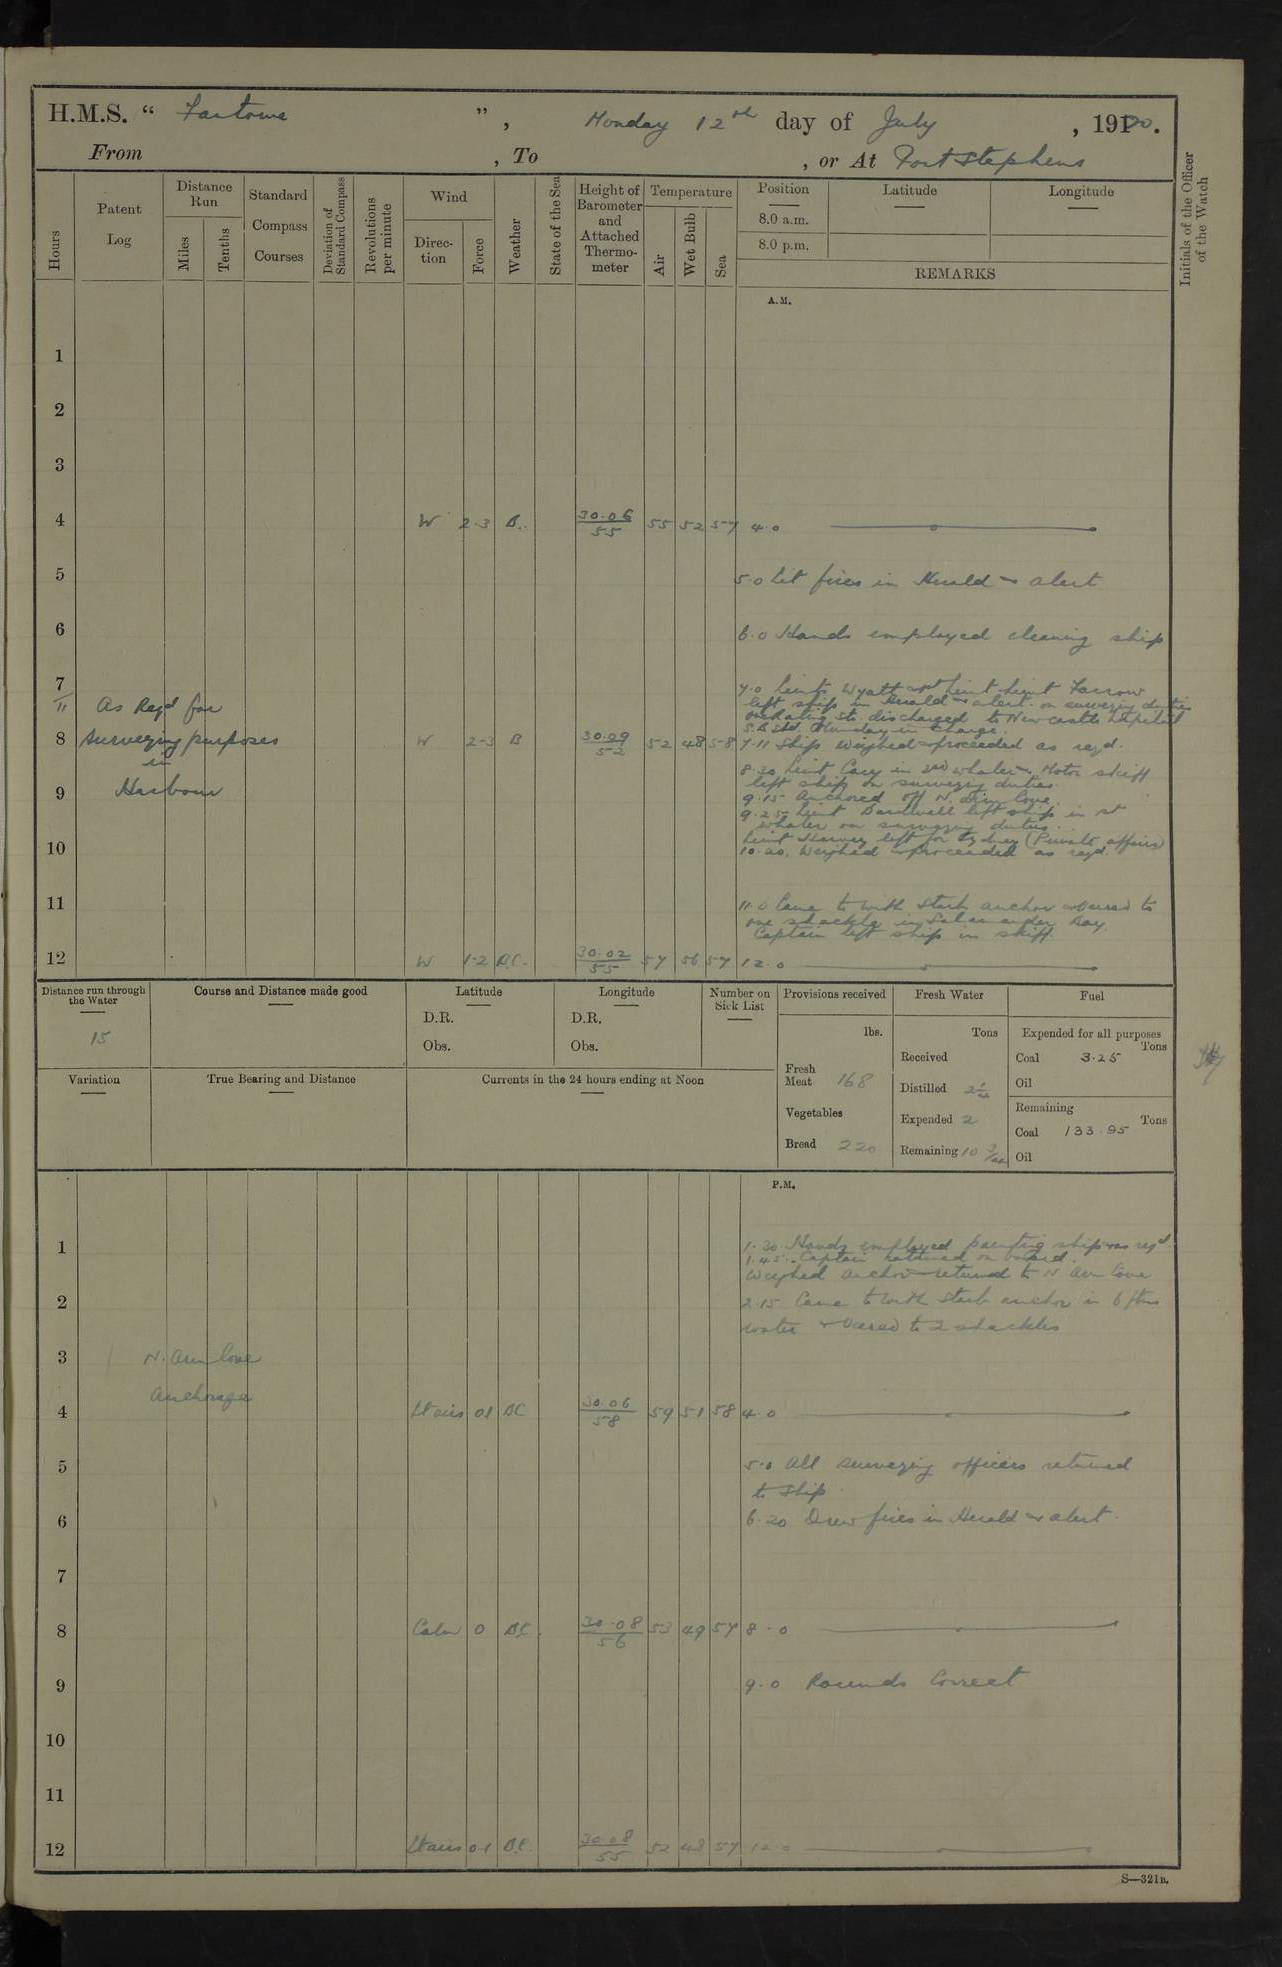 H.M.S. “ Fantome ”, Monday 12th day of July , 1920.
From , To , or At Port Stephens
Hours
Patent Log
Distance Run
Miles
Tenths
Standard Compass Courses
Deviation of Standard Compass
Revolutions per minute
Wind
Direction
Force
Weather
State of the Sea
Height of Barometer and Attached Thermometer
Temperature
Air
Wet Bulb
Sea
Position
8.0 a.m.
8.0 p.m.
Latitude
Longitude
REMARKS
Initials of the Officer of the Watch
A.M.
1
2
3
4 W 2-3 B. 30.06/55 55 52 57 4.0
5 5.0 Lit fires in Herald & Alert
6 6.0 Hands employed cleaning ship
7 7.0 Lieuts Wyatt and Lieut Farrow
left ship in Herald & Alert on surveying duties
discharged to Newcastle Hospital
in charge.
11 As Reqd for
8 Surveying purposes W 2-3 B 30.09/52 52 48 58 7.11 Ship weighed & proceeded as reqd.
in
8.30 Lieut Cary in 2nd whaler & Motor skiff
left ship on surveying duties
9 Harbour 9.15 Anchored off N. Arm Cove.
9.25 Lieut Bardwell left ship in 1st
whaler on surveying duties.
Lieut Harvey left for Sydney (Private affairs)
10 10.20. Weighed & proceeded as reqd.
11 11.0 Came to with Starb anchor & veered to
one shackle in Salamander Bay.
Captain left ship in skiff.
12 W 1-2 B.C. 30.02/55 57 56 57 12.0
Distance run through the Water
15
Course and Distance made good
Latitude
D.R.
Obs.
Longitude
D.R.
Obs.
Number on Sick List
Provisions received
lbs.
Fresh Meat 168
Vegetables
Bread 220
Fresh Water
Tons
Received
Distilled 2¼
Expended 2
Remaining 10
Fuel
Expended for all purposes
Tons
Coal 3.25
Oil
Remaining
Tons
Coal 133.95
Oil
Variation
True Bearing and Distance
Currents in the 24 hours ending at Noon
P.M.
1 1.30 Hands employed painting ship & as reqd.
1.45. Captain returned on board.
Weighed anchor & returned to N Arm Cove
2 2.15 Came to with Starb anchor in 6 fms
water & veered to 2 shackles
3 N. Arm Cove
Anchorage
4 Lt airs 01 BC 30.06/58 59 51 58 4.0
5 5.0 All surveying officers returned
to ship.
6 6.20 Drew fires in Herald & Alert.
7
8 Calm 0 BC. 30.08/56 53 49 57 8.0
9 9.0 Rounds Correct
10
11
12 Lt airs 0.1 B.C. 30.08/55 52 48 57 12.0
S—321B.